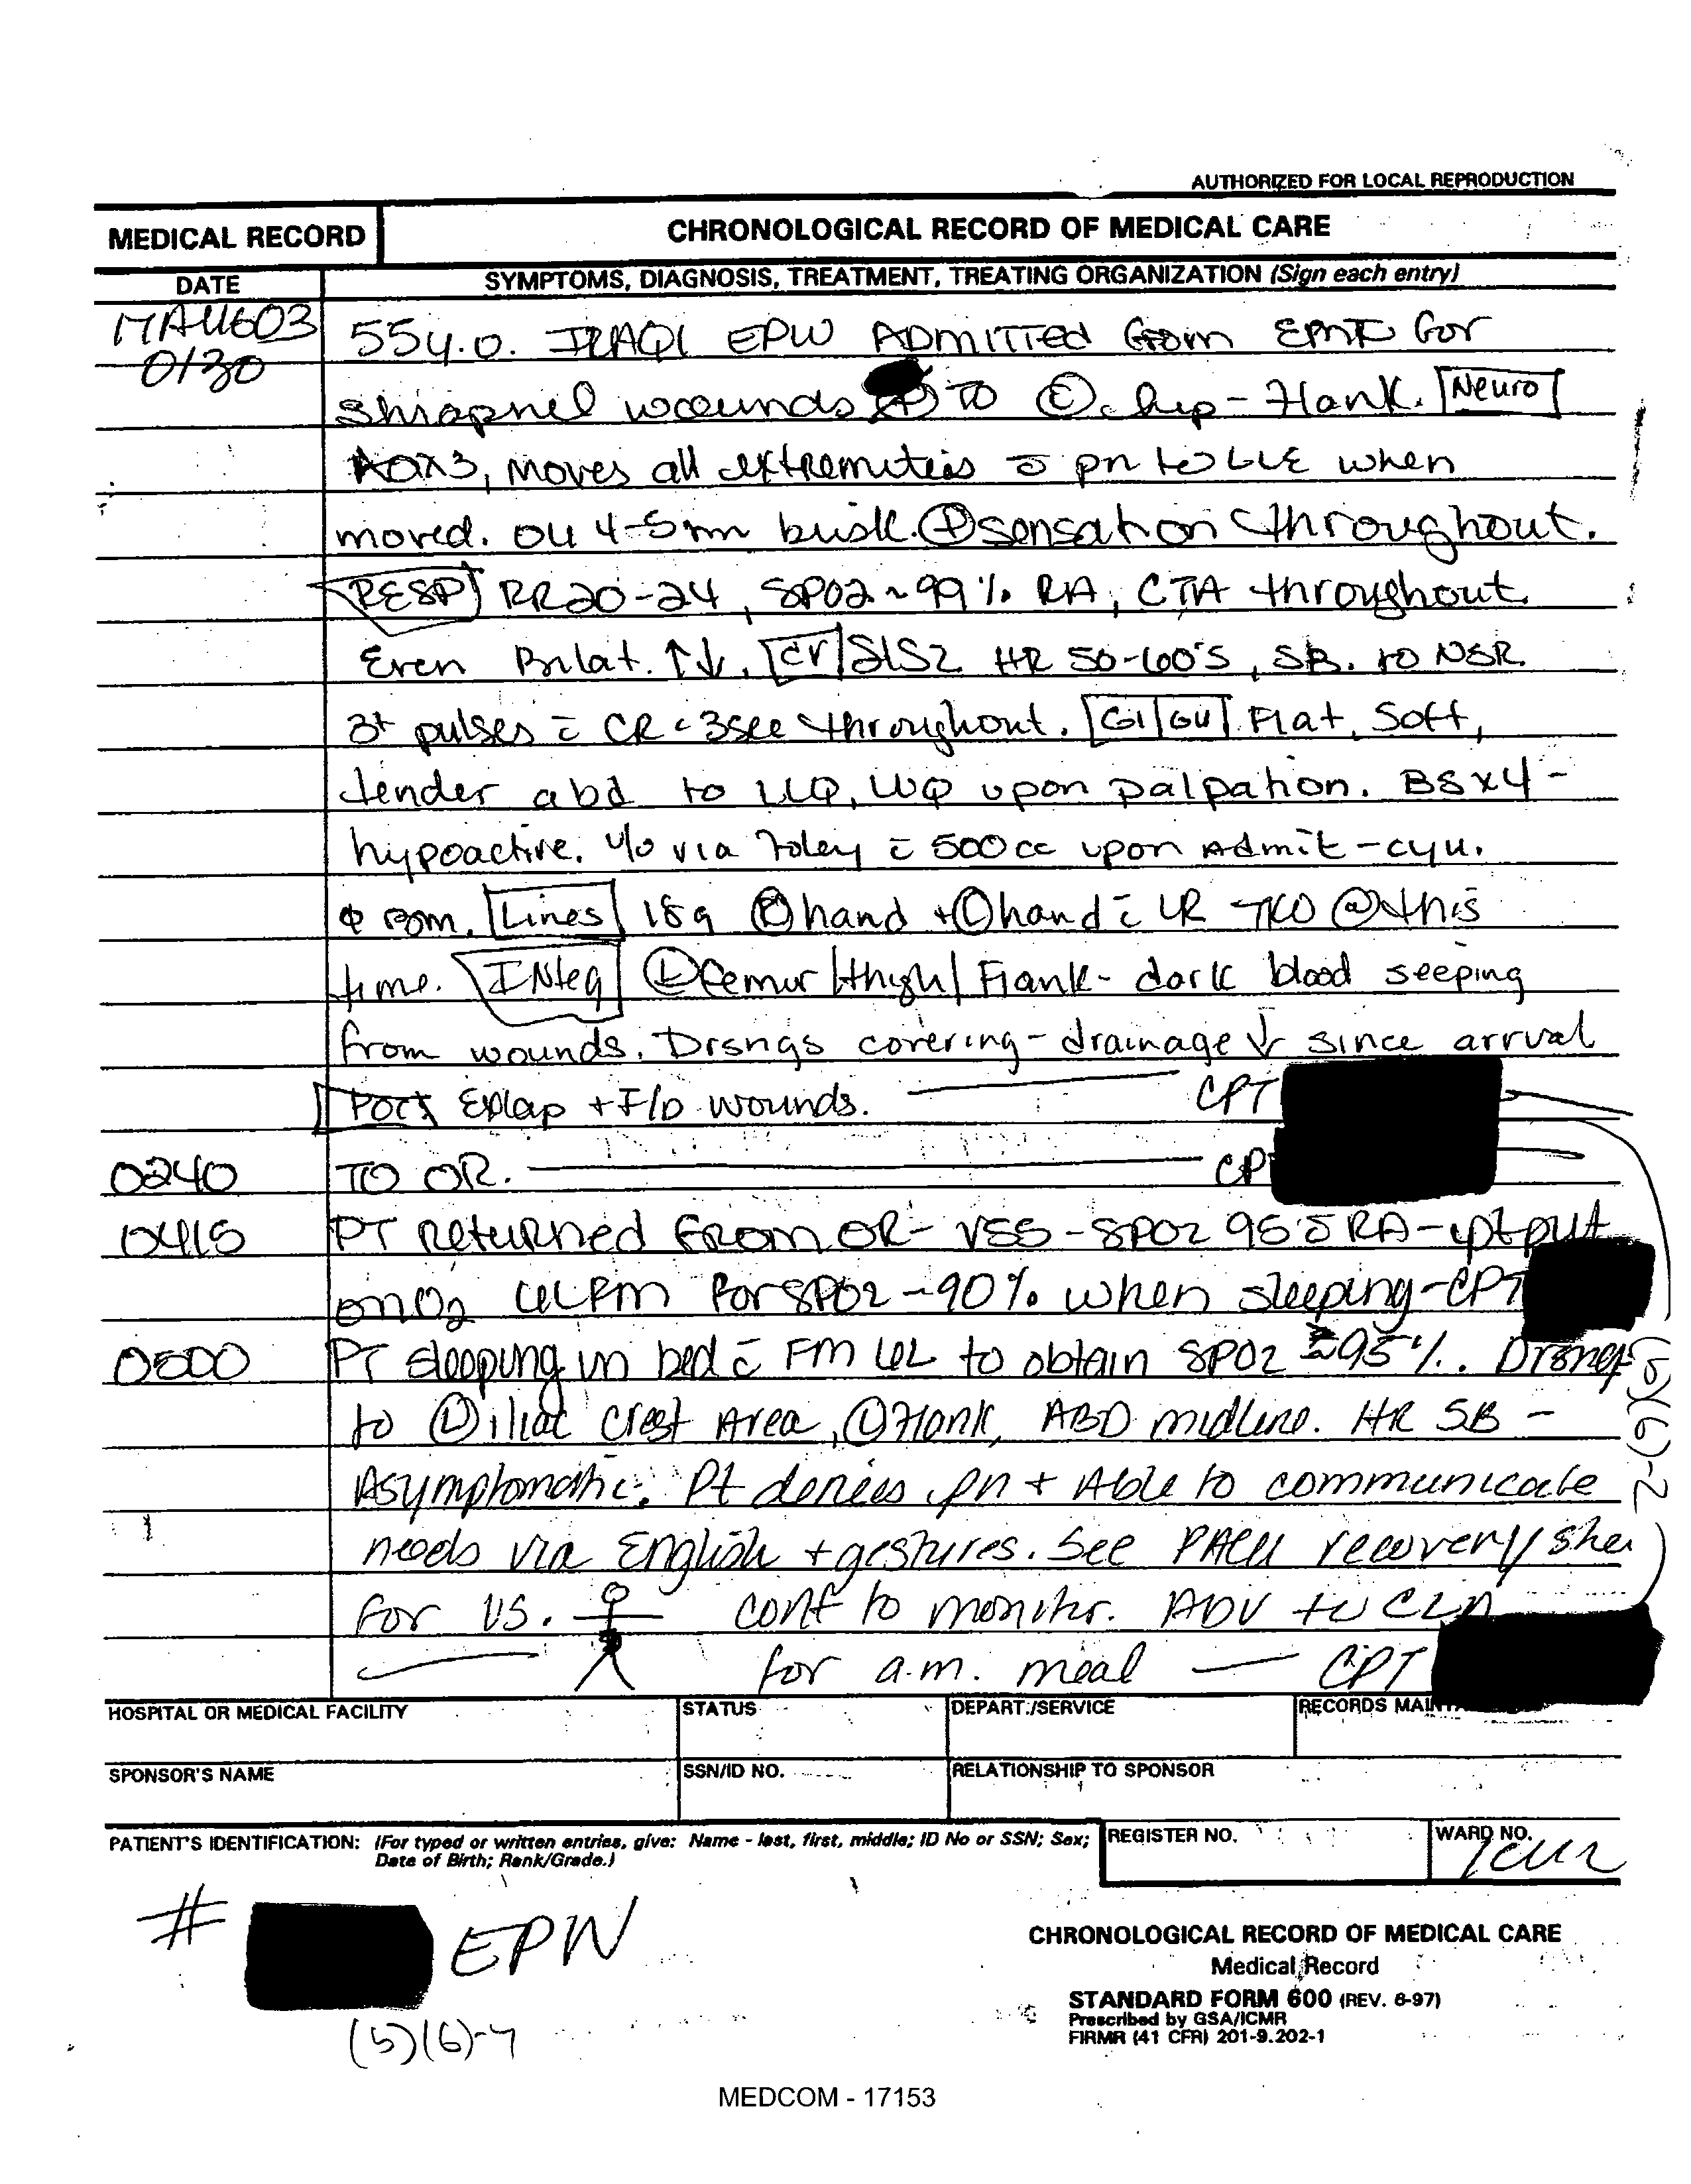 AUTHORIZED FOR LOCAL REPRODUCTION
MEDICAL RECORD
CHRONOLOGICAL RECORD OF MEDICAL CARE
DATE
SYMPTOMS, DIAGNOSIS, TREATMENT, TREATING ORGANIZATION (Sign each entry)
17AUG03 55y.o. IRAQI EPW ADMITTED from EMT for
0130
Shrapnel wounds TO Ⓛ hip - Flank. Neuro
AOX3, moves all extremities c̄ pn to LLE when
moved. OU 4-5mm brisk. ⊕ sensation throughout.
RESP RR20-24, SPO2 ~ 99% RA, CTA throughout.
Even Bilat. ↑↓. CV S1S2 HR 50-60'S, SB. to NSR.
3+ pulses c̄ CR < 3sec throughout. GI/GU Flat, Soft,
tender abd to LLQ, LUQ upon palpation. BSx4 -
hypoactive. u/o via Foley c̄ 500cc upon Admit - cyu.
φ BM. Lines 18g Ⓡ hand + Ⓛ hand c̄ LR TKO @ this
time. INteg Ⓛ femur/thigh/Flank - dark blood seeping
from wounds. Drsngs covering - drainage ↓ since arrival
Exlap + I/D wounds. CPT
0240 TO OR. CPT
0415 PT returned from OR - VSS - SPO2 95 c̄ RA - pt put
on O2 LPM for SPO2 ~90% when sleeping - CPT
0500 PT sleeping in bed c̄ FM L to obtain SPO2 ≥95%. Drsngs
to Ⓛ iliac crest Area, Ⓛ Flank, ABD midline. HR SB -
Asymptomatic. Pt denies pn + Able to communicate
needs via English + gestures. See PACU recovery shee
for VS. cont to monitor. ADV to CLD
for a.m. meal — CPT
(b)(6)-2
HOSPITAL OR MEDICAL FACILITY
STATUS
DEPART./SERVICE
RECORDS
SPONSOR'S NAME
SSN/ID NO.
RELATIONSHIP TO SPONSOR
PATIENT'S IDENTIFICATION: (For typed or written entries, give: Name - last, first, middle; ID No or SSN; Sex; Date of Birth; Rank/Grade.)
REGISTER NO.
WARD NO.
# EPW
(b)(6)-4
CHRONOLOGICAL RECORD OF MEDICAL CARE
Medical Record
STANDARD FORM 600 (REV. 6-97)
Prescribed by GSA/ICMR
FIRMR (41 CFR) 201-9.202-1
MEDCOM - 17153